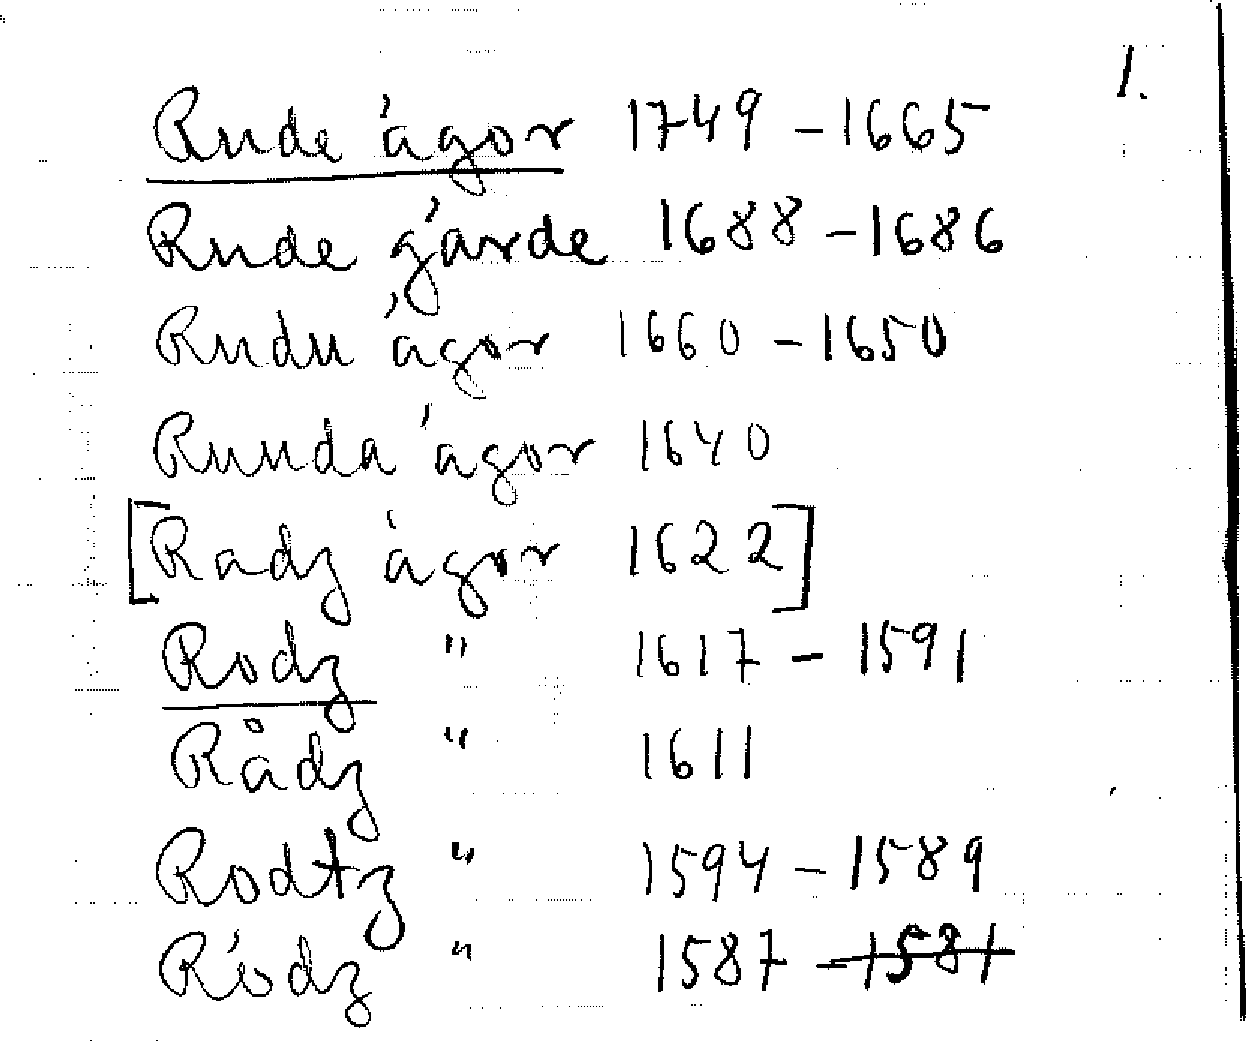 1.
Rude ágor 1749 - 1665
Rude gárde 1688 - 1686
Rudu ágor 1660 - 1650
Runda ágor 1640
[Radz ágor 1622]
Rodz " 1617 - 1591
Rådz " 1611
Rodtz " 1594 - 1589
Ródz " 1587 - 1581